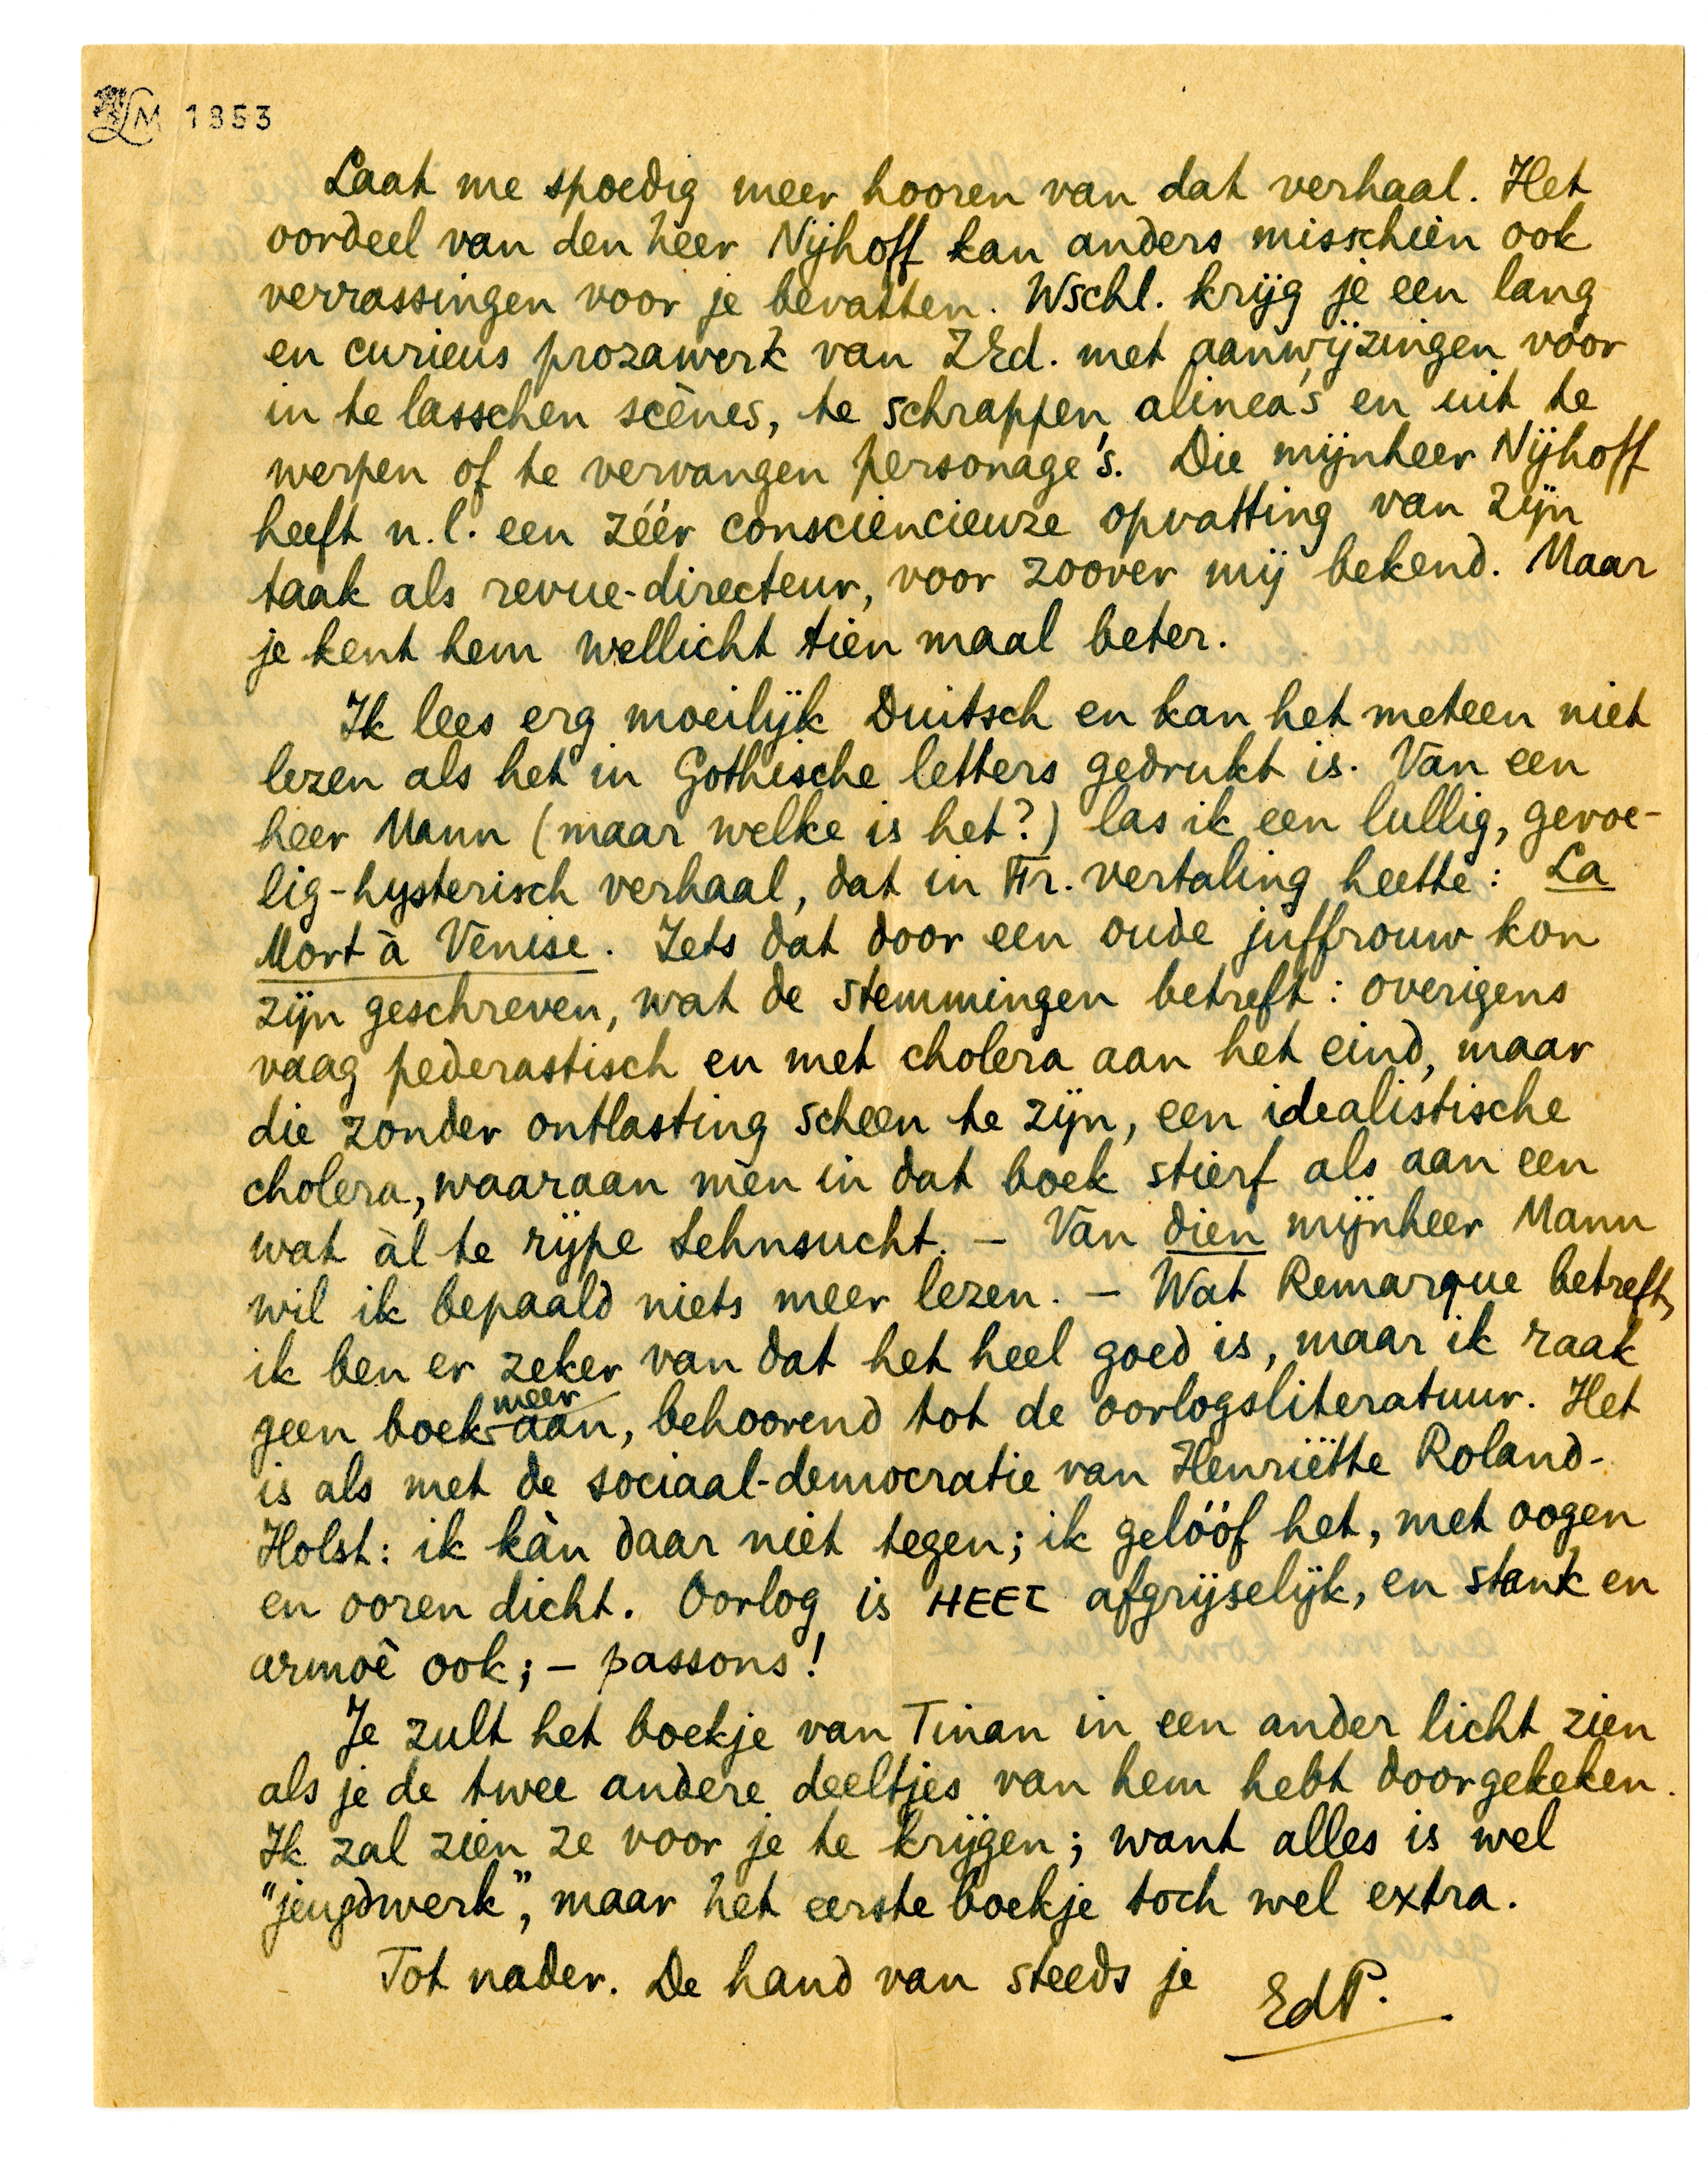 LM 1853
Laat me spoedig meer hooren van dat verhaal. Het
oordeel van den heer Nijhoff kan anders misschien ook
verrassingen voor je bevatten. Wschl. krijg je een lang
en curieus prozawerk van ZEd. met aanwijzingen voor
in te lasschen scènes, te schrappen alinea's en uit te
werpen of te vervangen personage's. Die mijnheer Nijhoff
heeft n.l. een zéér consciencieuze opvatting van zijn
taak als revue-directeur, voor zoover mij bekend. Maar
je kent hem wellicht tien maal beter.
Ik lees erg moeilijk Duitsch en kan het meteen niet
lezen als het in Gothische letters gedrukt is. Van een
heer Mann (maar welke is het?) las ik een lullig, gevoe-
lig-hysterisch verhaal, dat in Fr. vertaling heette: La
Mort à Venise. Iets dat door een oude juffrouw kon
zijn geschreven, wat de stemmingen betreft: overigens
vaag pederastisch en met cholera aan het eind, maar
die zonder ontlasting scheen te zijn, een idealistische
cholera, waaraan men in dat boek stierf als aan een
wat àl te rijpe Sehnsucht. - Van dien mijnheer Mann
wil ik bepaald niets meer lezen. - Wat Remarque betreft,
ik ben er zeker van dat het heel goed is, maar ik raak
geen boek meer aan, behoorend tot de oorlogsliteratuur. Het
is als met de sociaal-democratie van Henriëtte Roland-
Holst: ik kàn daar niet tegen; ik gelóóf het, met oogen
en ooren dicht. Oorlog is HEEL afgrijselijk, en stank en
armoê ook; - passons!
Je zult het boekje van Tinan in een ander licht zien
als je de twee andere deeltjes van hem hebt doorgekeken.
Ik zal zien ze voor je te krijgen; want alles is wel
"jeugdwerk", maar het eerste boekje toch wel extra.
Tot nader. De hand van steeds je EdP.